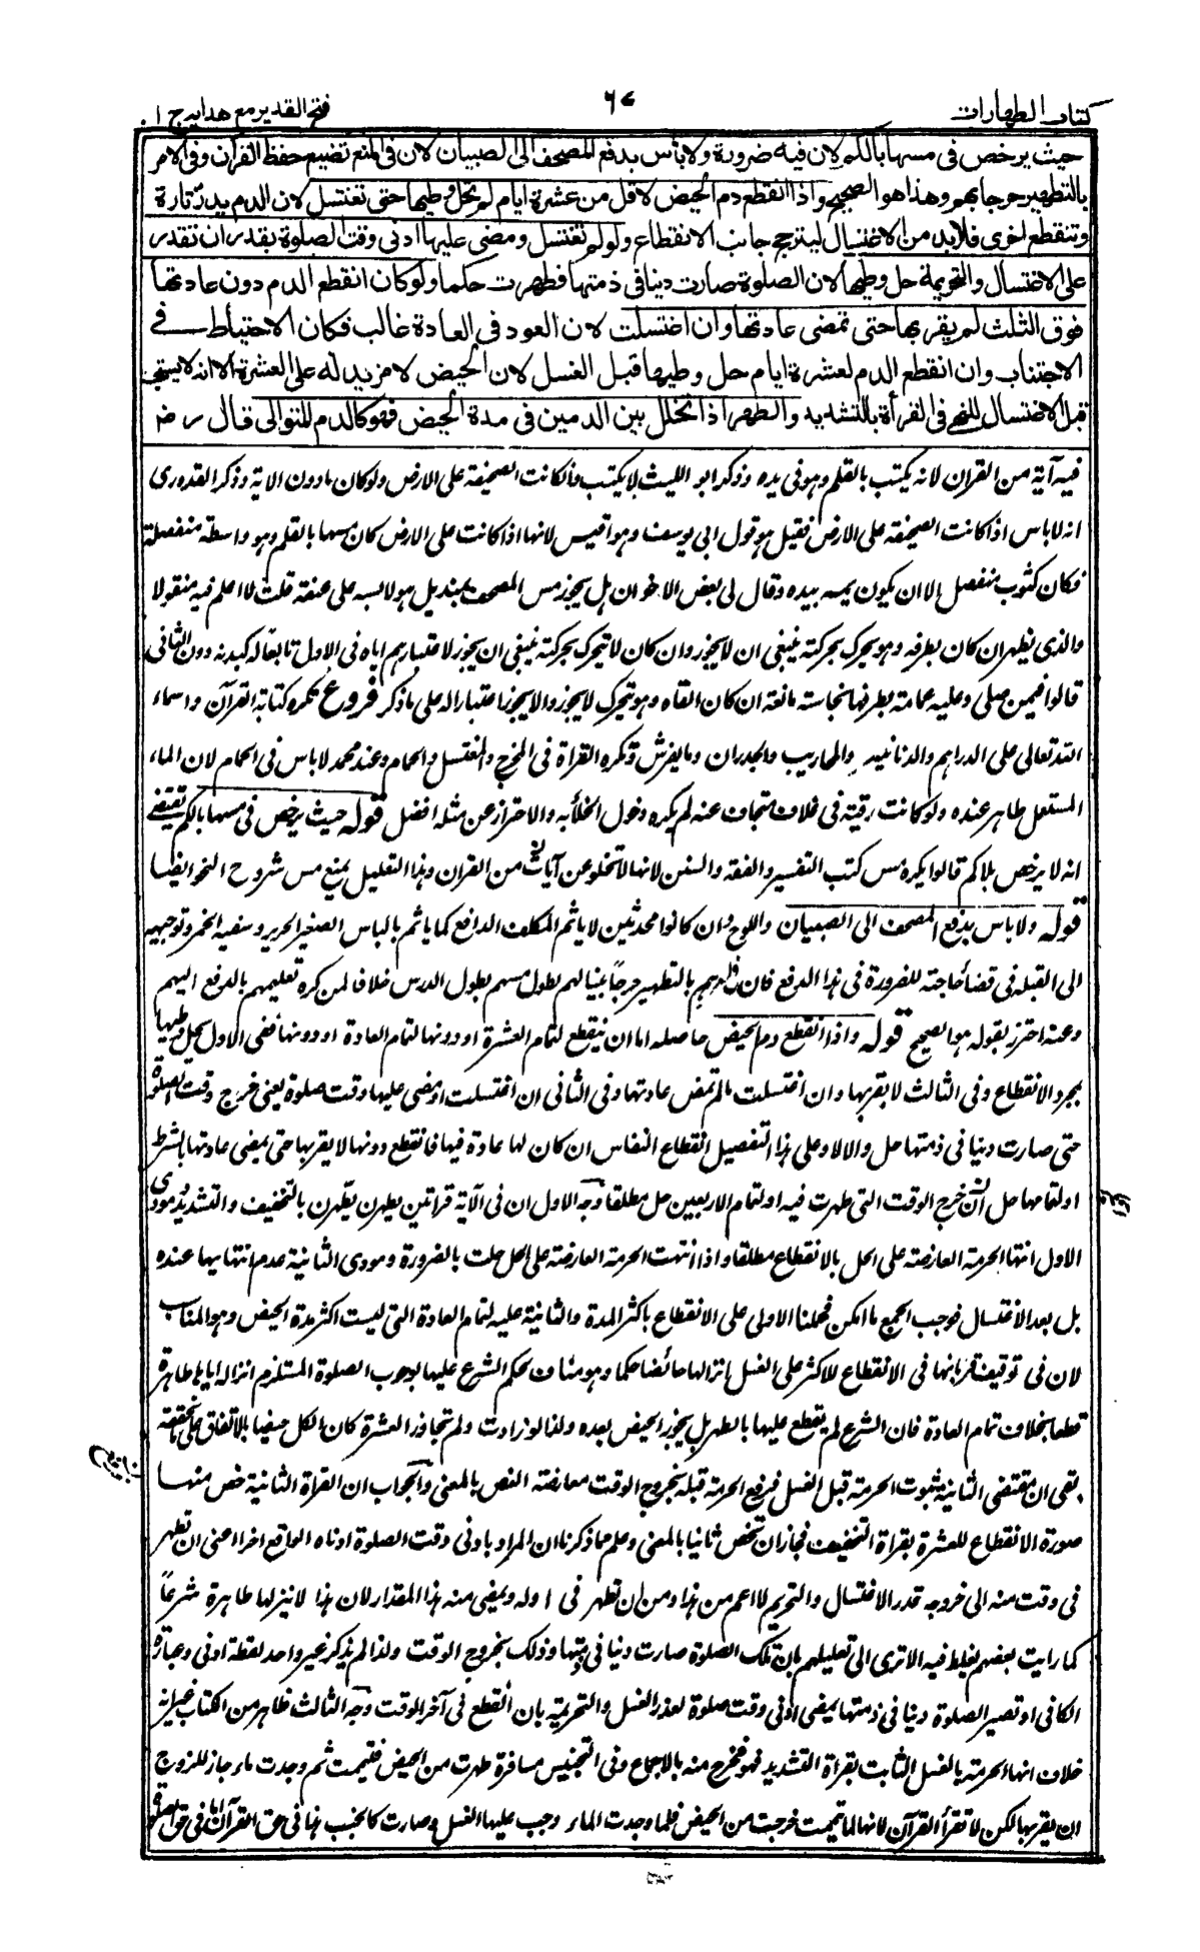 كتاب الطهارات
٦٧
فتح القدير مع هدايه ج ١
حيث يرخص فى مسها بالكم لان فيه ضرورة ولا باس بدفع المصحف الى الصبيان لان فى المنع تضييع حفظ القران وفى الامر
بالتطهير حرجا بهم وهذا هو الصحيح واذا انقطع دم الحيض لاقل من عشرة ايام لم تحل وطيها حتى تغتسل لان الدم يدر تارة
وتنقطع اخرى فلابد من الاغتسال ليترجح جانب الانقطاع ولو لم تغتسل ومضى عليها ادنى وقت الصلوة بقدر ان تقدر
على الاغتسال والتحريمة حل وطيها لان الصلوة صارت دينا فى ذمتها فطهرت حكما ولو كان انقطع الدم دون عادتها
فوق الثلث لم يقربها حتى تمضى عادتها وان اغتسلت لان العود فى العادة غالب فكان الاحتياط فى
الاجتناب وان انقطع الدم لعشرة ايام حل وطيها قبل الغسل لان الحيض لا مزيد له على العشرة الا انه لا يستحب
قبل الاغتسال للنهى فى القرأة بالتشديد والطهر اذا تخلل بين الدمين فى مدة الحيض فهو كالدم المتوالى قال رض
فيه آية من القران لانه يكتب بالقلم وهو فى يده وذكر ابو الليث لا يكتب وان كانت الصحيفة على الارض ولو كان ما دون الاية وذكر القدورى
انه لا باس اذا كانت الصحيفة على الارض فقيل هو قول ابى يوسف وهو اقيس لانها اذا كانت على الارض كان مسها بالقلم وهو واسطة منفصلة
فكان كثوب منفصل الا ان يكون يمسه بيده وقال لى بعض الاخوان هل يجوز مس المصحف بمنديل هو لابسه على عنقه قلت لا اعلم فيه منقولا
والذى يظهر ان كان بطرفه وهو يتحرك بحركته ينبغى ان لا يجوز وان كان لا يتحرك بحركته ينبغى ان يجوز لاعتبارهم اياه فى الاول تابعا له كبدنه دون الثانى
قالوا فيمن صلى وعليه عمامة بطرفها نجاسة مانعة ان كان القاه وهو يتحرك لا يجوز والا يجوز اعتبارا له على ما ذكر فروع تكره كتابة القرآن واسماء
الله تعالى على الدراهم والدنانير والمحاريب والجدران وما يفرش وتكره القراة فى المخرج والمغتسل والحمام وعند محمد لا باس فى الحمام لان الماء
المستعمل طاهر عنده ولو كانت رقية فى غلاف متجاف عنه لم يكره دخول الخلأ به والاحتراز عن مثله افضل قوله حيث يرخص فى مسها بالكم يقتضى
انه لا يرخص بلا كم قالوا يكره مس كتب التفسير والفقه والسنن لانها لا تخلو عن آيات من القران وهذا التعليل يمنع مس شروح النحو ايضا
قوله ولا باس بدفع المصحف الى الصبيان واللوح وان كانوا محدثين لا ياثم المكلف الدافع كما ياثم بالباس الصغير الحرير وسقيه الخمر وتوجيهه
الى القبلة فى قضأ حاجته للضرورة فى هذا الدفع فان فى امرهم بالتطهير حرجا بينا لهم بطول مسهم بطول الدرس خلافا لمن كره تعليمهم بالدفع اليهم
وعنه احترز بقوله هو الصحيح قوله واذا انقطع دم الحيض حاصله اما ان ينقطع لتمام العشرة او دونها لتمام العادة او دونها ففى الاول يحل وطيها
بمجرد الانقطاع وفى الثالث لا يقربها وان اغتسلت ما لم تمض عادتها وفى الثانى ان اغتسلت او مضى عليها وقت صلوة يعنى خرج وقت الصلوة
حتى صارت دينا فى ذمتها حل والا لا وعلى هذا التفصيل انقطاع النفاس ان كان لها عادة فيها فانقطع دونها لا يقربها حتى يمضى عادتها بالشرط
او لتمامها حل ان خرج الوقت التى طهرت فيه او لتمام الاربعين حل مطلقا وجه الاول ان فى الآية قراتين يطهرن يطّهرن بالتخفيف والتشديد ومودى
الاول انتهاء الحرمة العارضة على الحل بالانقطاع مطلقا واذا انتهت الحرمة العارضة على الحل حلت بالضرورة ومودى الثانية عدم انتهائها عنده
بل بعد الاغتسال فوجب الجمع ما امكن فحملنا الاولى على الانقطاع باكثر المدة والثانية عليه لتمام العادة التى ليست اكثر مدة الحيض وهو المناسب
لان فى توقيف قربانها فى الانقطاع للاكثر على الغسل انزالها حائضا حكما وهو مناف لحكم الشرع عليها بوجوب الصلوة المستلزم انزاله اياها طاهرة
قطعا بخلاف تمام العادة فان الشرع لم يقطع عليها بالطهر بل يجوز الحيض بعده ولذا لو زادت ولم تجاوز العشرة كان الكل حيضا بالاتفاق على ما نحققه
بقى ان مقتضى الثانية ثبوت الحرمة قبل الغسل فرفع الحرمة قبله بخروج الوقت معارضة النص بالمعنى والجواب ان القراة الثانية خص منها
صورة الانقطاع للعشرة بقراة التخفيف فجاز ان تخص ثانيا بالمعنى وعلم مما ذكرنا ان المراد بادنى وقت الصلوة ادناه الواقع اخرا اعنى ان تطهر
فى وقت منه الى خروجه قدر الاغتسال والتحريم لا اعم من هذا ومن ان تطهر فى اوله ويمضى منه هذا المقدار لان هذا لا ينزلها طاهرة شرعاً
كما رايت بعضهم يغلط فيه الا ترى الى تعليلهم بان تلك الصلوة صارت دينا فى ذمتها وذلك بخروج الوقت ولذا لم يذكر غير واحد لفظة ادنى وعبارة
الكافى او تصير الصلوة دينا فى ذمتها بمضى ادنى وقت صلوة لقدر الغسل والتحريمة بان انقطع فى آخر الوقت وجه الثالث ظاهر من الكتاب غير انه
خلاف انهاء الحرمة بالغسل الثابت بقراة التشديد فهو مخرج منه بالاجماع وفى التجنيس مسافرة طهرت من الحيض فتيممت ثم وجدت ماء جاز للزوج
ان يقربها لكن لا تقرأ القرآن لانها لما تيممت خرجت من الحيض فلما وجدت الماء وجب عليها الغسل وصارت كالجنب